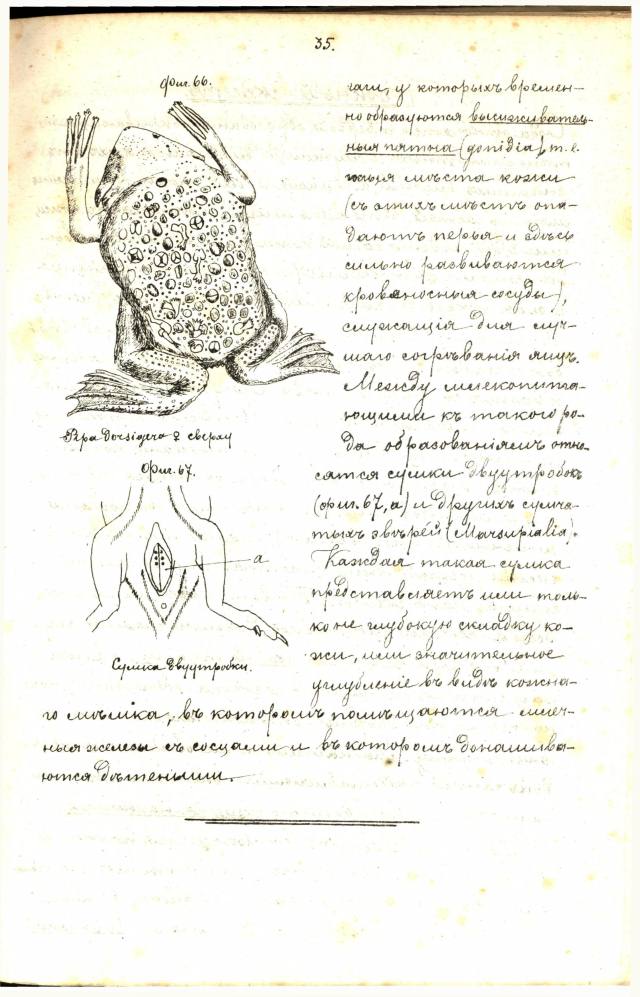 35.
Фиг. 66.
гаги, у которыхъ времен-
но образуются высиживатель-
ныя пятна (gonidia), т. е.
мѣста кожи
(съ этихъ мѣстъ опа-
даютъ перья и здѣсь
сильно развиваются
кровеносные сосуды),
служащія для луч-
шаго согрѣванія яицъ.
Между млекопита-
ющими къ такого ро-
да образованіямъ отно-
сятся сумки двуутробокъ
(фиг. 67, а) и другихъ сумча-
тыхъ звѣрей (Marsupialia).
Каждая такая сумка
представляетъ или толь-
ко не глубокую складку ко-
жи, или значительное
углубленіе въ видѣ кожна-
го мѣшка, въ которомъ помѣщаются млеч-
ныя железы съ сосцами и въ которомъ донашива-
ются дѣтеныши.
Pipa Dorsigera ♀ сверху
Фиг. 67.
а
Сумка двуутробки.